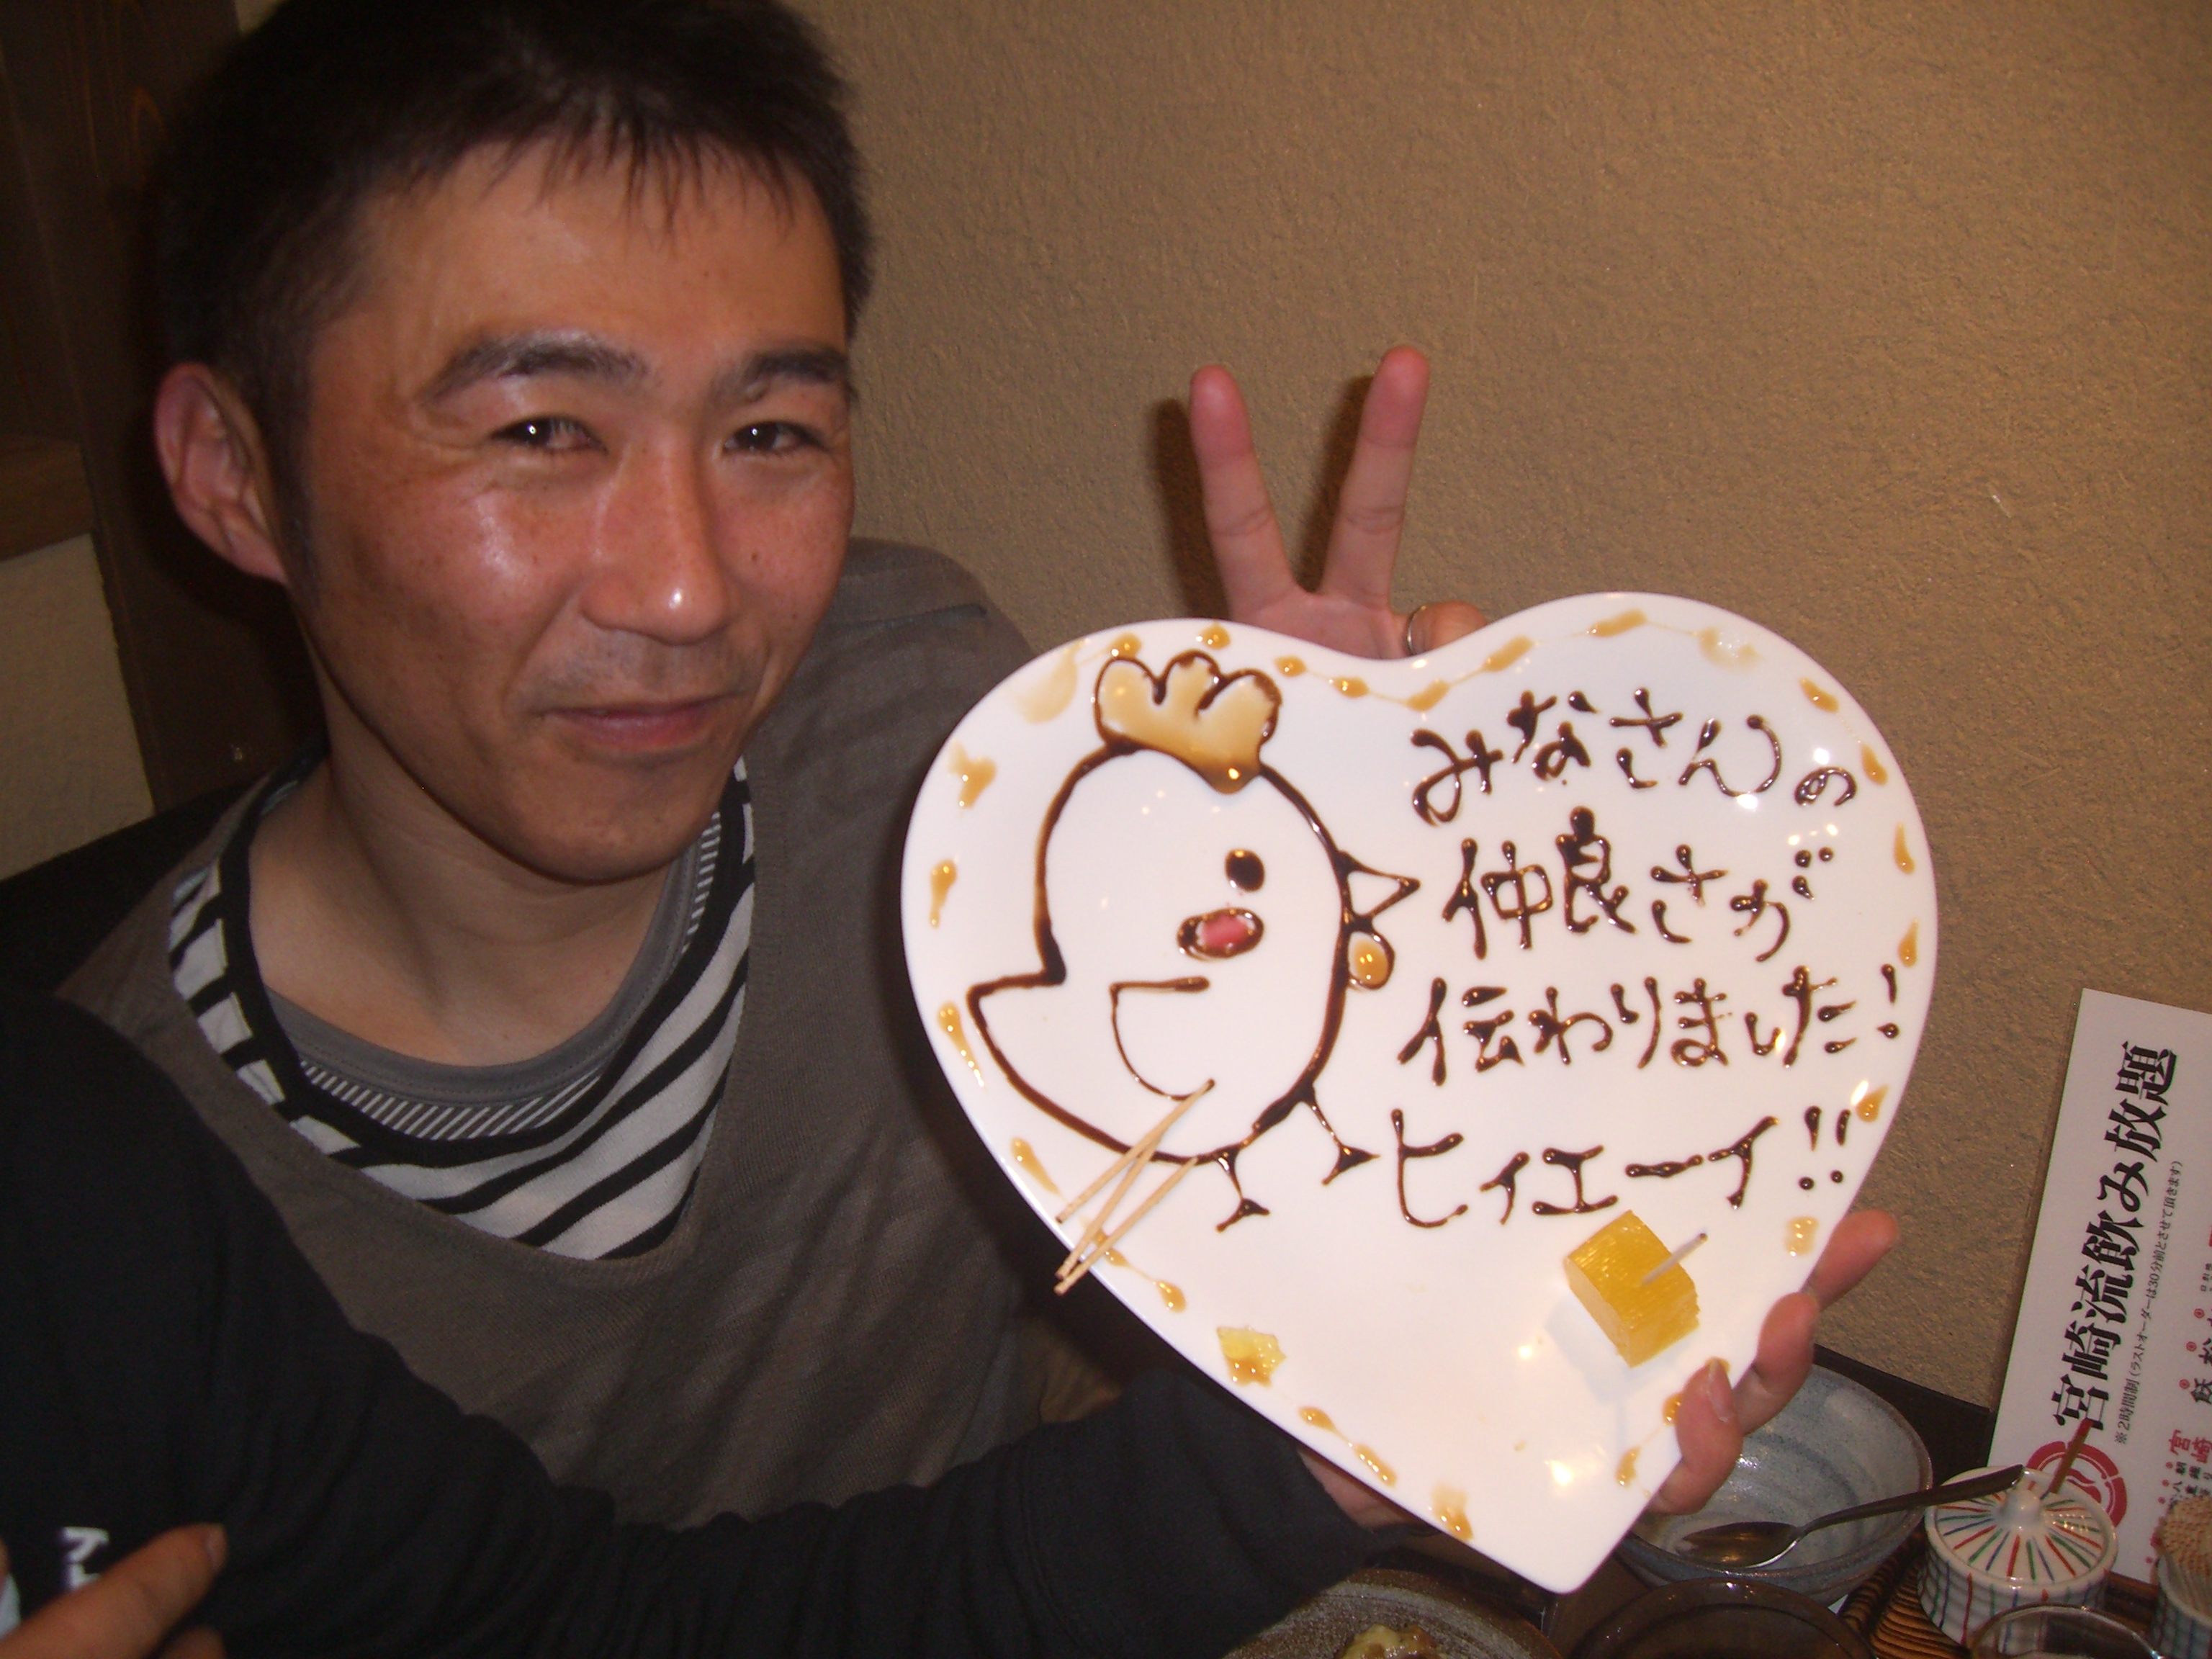 みなさんの
仲良さが
伝わりました!
ヒィエーイ!!
宮崎流飲み放題
※2時間制(ラストオーダーは30分前とさせて頂きます)
宮崎